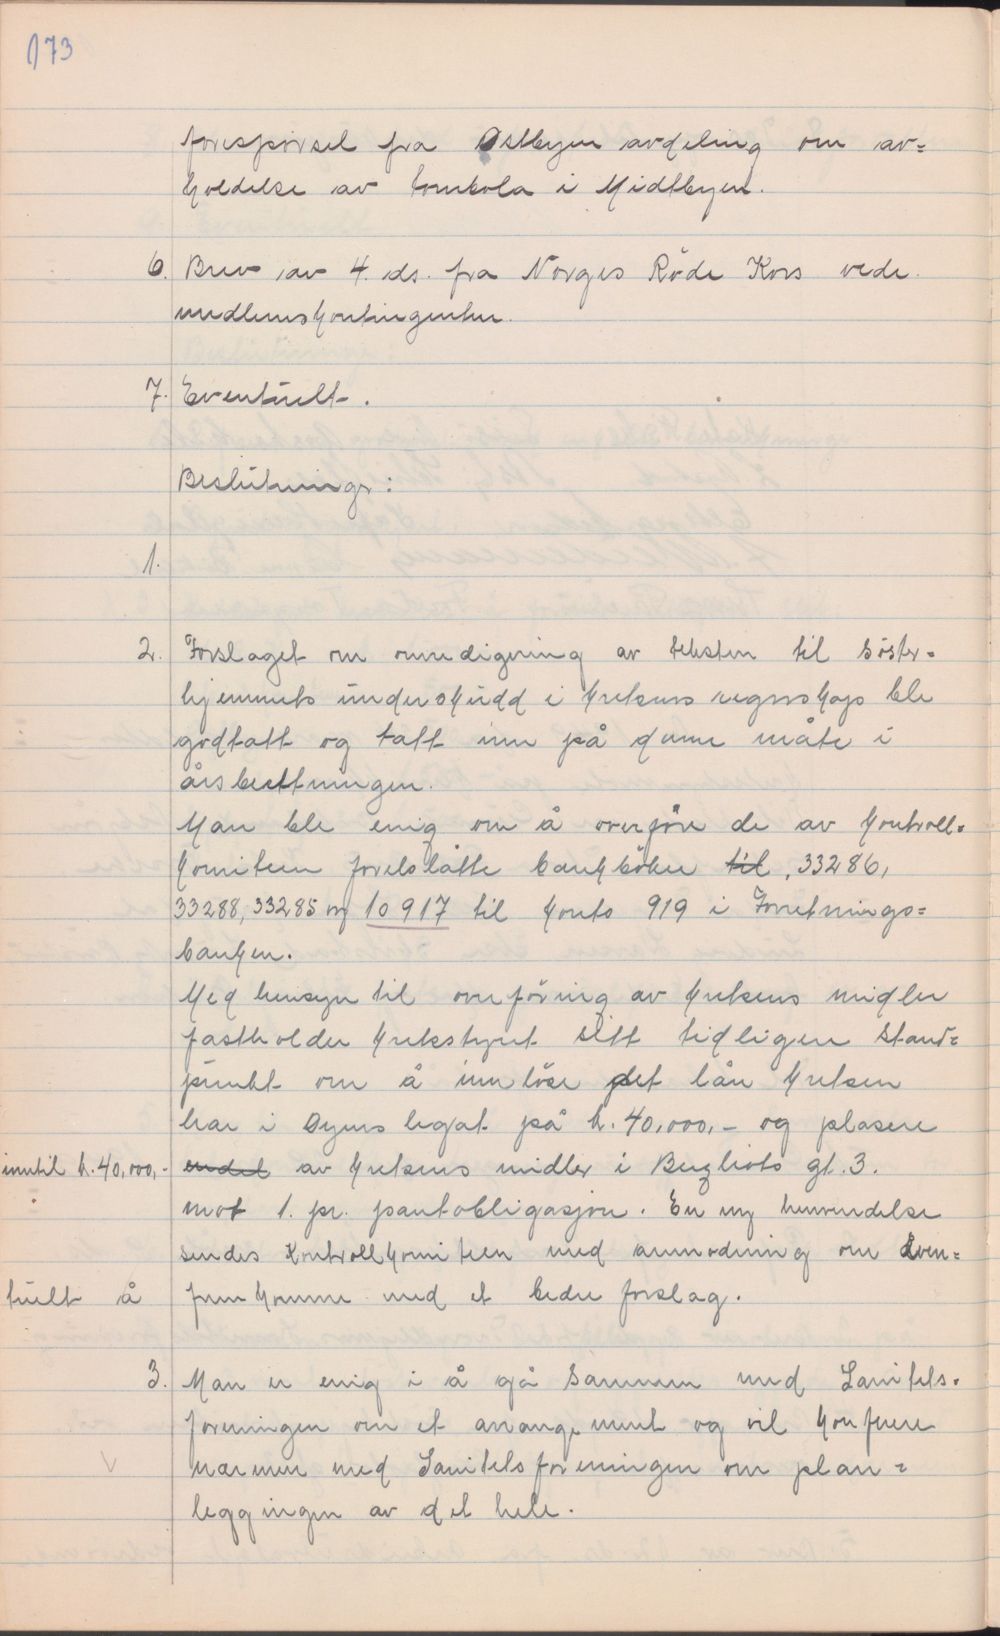 173
forespørsel fra Østbyen avdeling om av=
holdelse av tombola i Midtbyen.
6. Brev av 4. ds. fra Norges Røde Kors vedr.
medlemskontingenten.
7. Eventuelt.
Beslutninger:
1.
2. Forslaget om omredigering av teksten til søster=
hjemmets underskudd i kretsens regnskap ble
godtatt og tatt inn på denne måte i
årsberetningen.
Man ble enig om å overføre de av kontroll=
komiteen foreslåtte bankbøker til, 33286,
33288, 33285 og 10917 til konto 919 i Forretnings=
banken.
Med hensyn til overføring av kretsens midler
fastholder kretsstyret sitt tidligere stand=
punkt om å innløse det lån kretsen
har i Oyens legat på k. 40,000,- og plasere
inntil k. 40,000,- endel av kretsens midler i Bergliots gt. 3.
mot 1. pr. pantobligasjon. En ny henvendelse
sendes kontrollkomiteen med anmodning om even=
tuelt å fremkomme med et bedre forslag.
3. Man er enig i å gå sammen med Sanitets=
foreningen om et arrangement og vil konferere
nærmere med Sanitetsforeningen om plan=
leggingen av det hele.